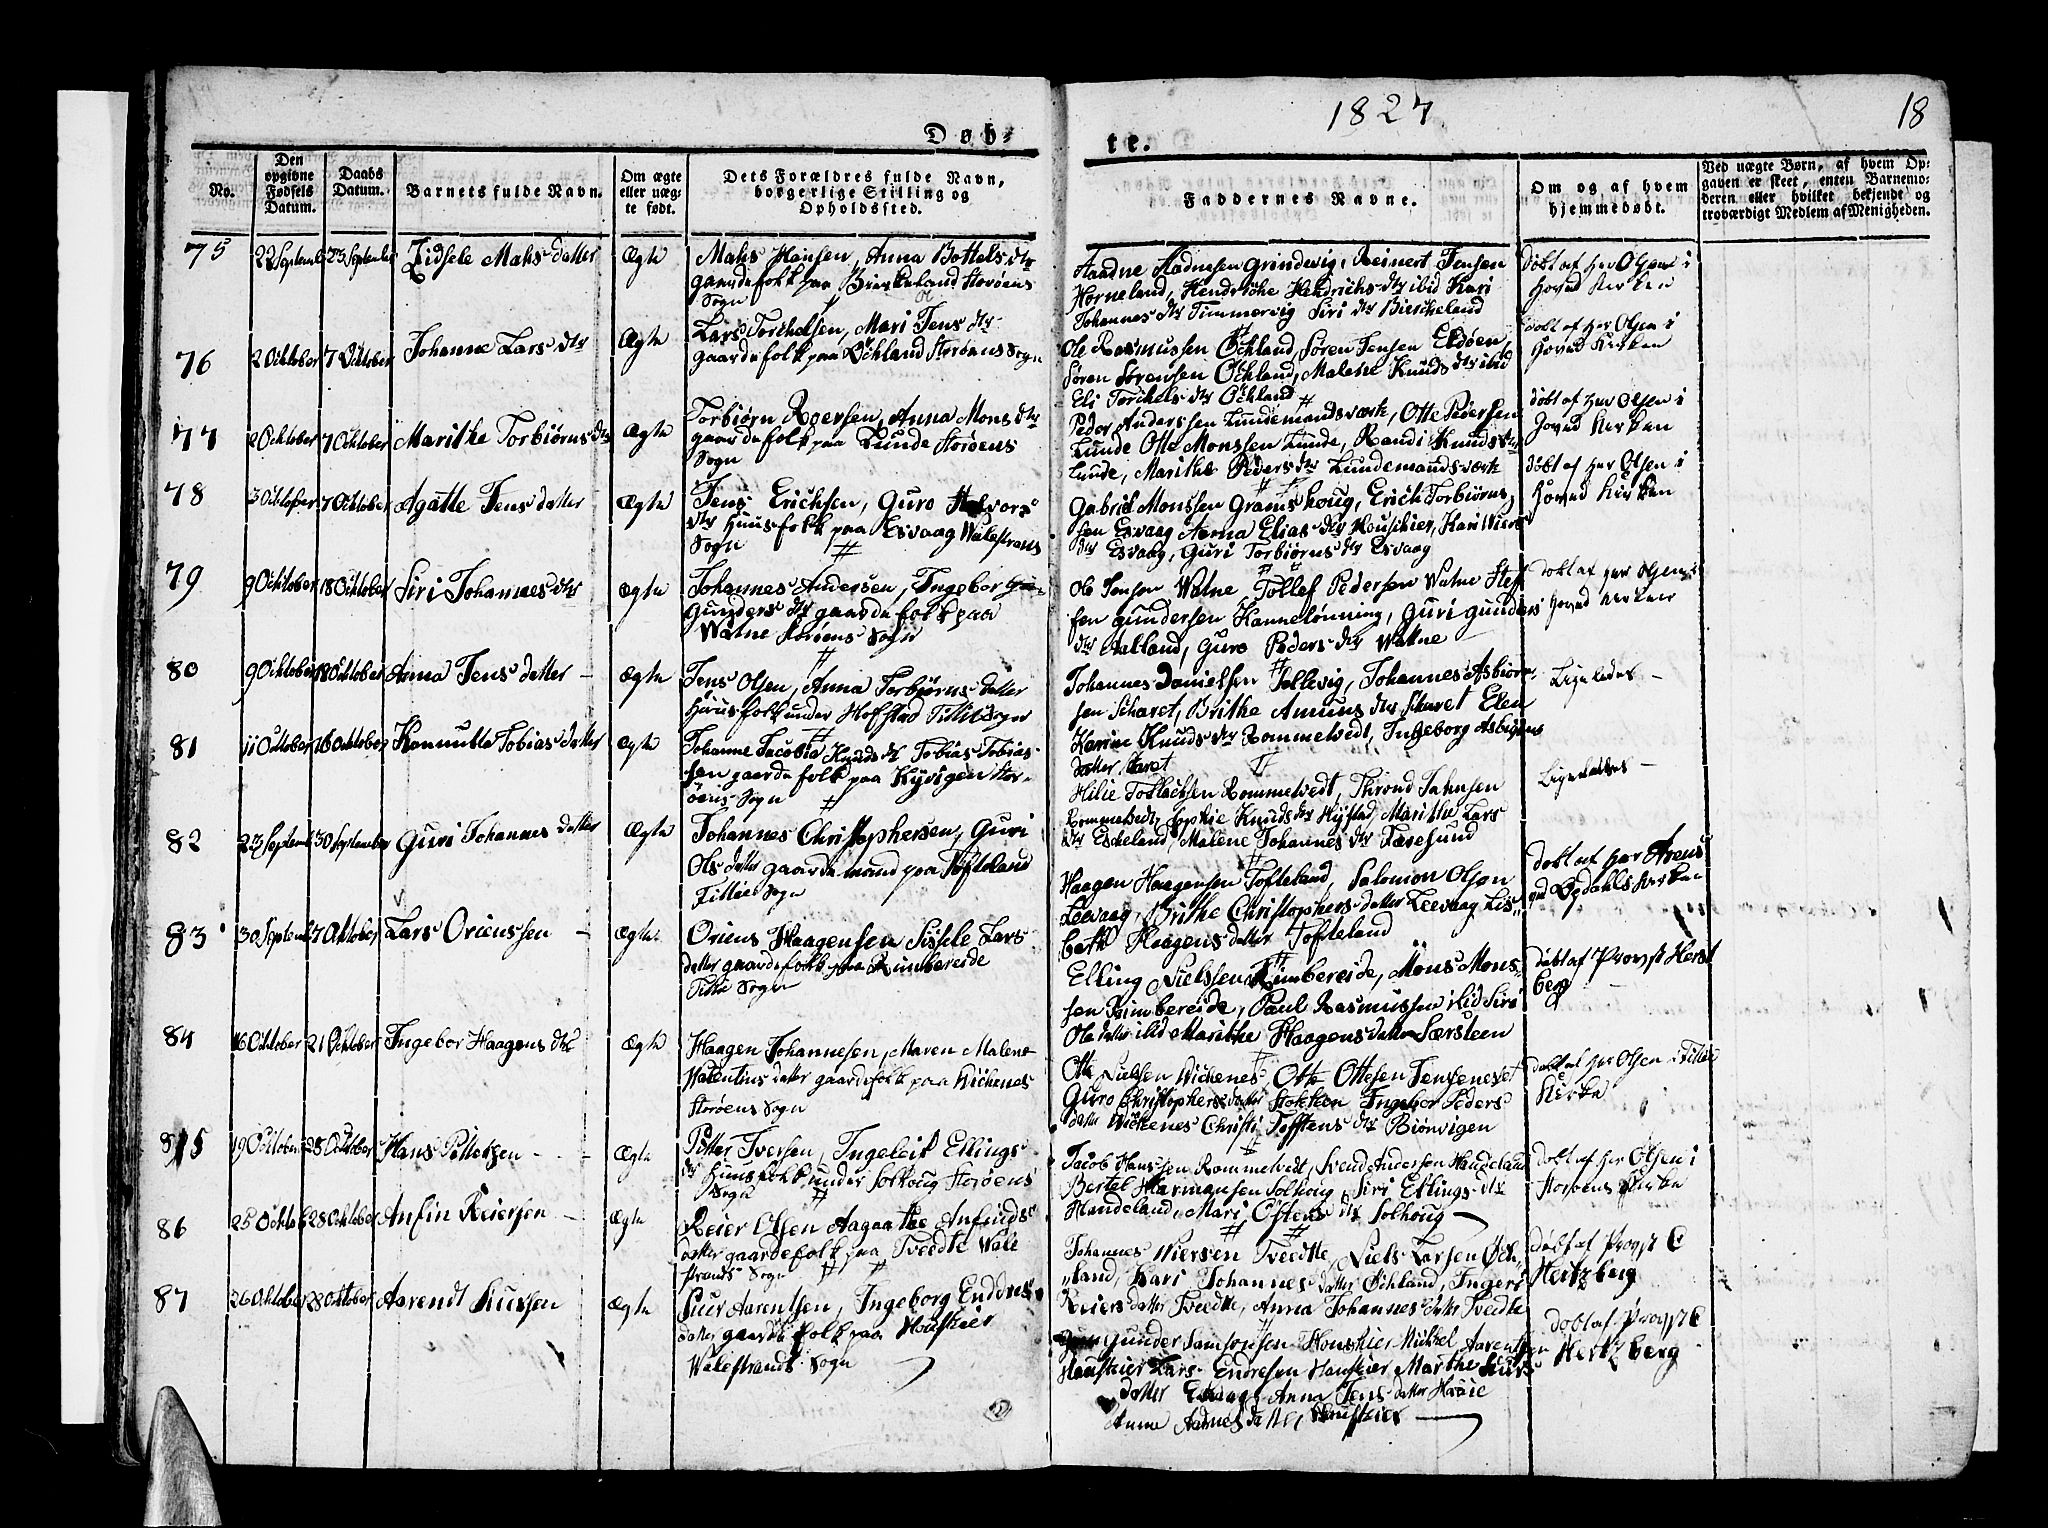 1827
18
Døb-
te.
No.
Den opgivne Fødsels Datum.
Daabs Datum.
Barnets fulde Navn.
Om ægte eller uægte født.
Dets Forældres fulde Navn, borgerlige Stilling og Opholdssted.
Faddernes Navne.
Om og af hvem hjemmedøbt.
Ved uægte Børn, af hvem Opgaven er skeet, enten Barnemoderen eller hvilket bekjendt og troværdigt Medlem af Menigheden.
75
22 Septemb
23 September
Zidsele Mahs datter
Ægte
Mahs Hansen, Anna Bottels dtr
gaardefolk paa Birkeland Storøens
Sogn
Aadne Aadnesen Grindevig, Reinert Jensen
Horneland, Hendriche Hendrichs dtr ibid Kari
Johannes dtr Tummervig Siri dtr Birckeland
døbt af Her Olsen i
Hoved Kirken
76
2 Ocktober
7 Ocktober
Johanne Lars dtr
Ægte
Lars Torchelsen, Mari Jens dtr
gaardefolk paa Öchland Storøens Sogn
Ole Rasmussen Öchland, Søren Jensen Eldøen,
Søren Sørensen Öchland, Malene Knuds dtr ibid
Eli Torchels dtr Öchland
døbt af Her Olsen i
Hoved Kirken
77
2 Ocktober
7 Ocktober
Marithe Torbiørns dtr
Ægte
Torbiørn Roersen, Anna Mons dtr
gaardefolk paa Lunde Storøens
Sogn
Peder Anderssen Lundemandsværk, Otte Pedersen
Lunde Otte Monssen Lunde, Randi Knuds dtr
Lunde, Marithe Peders dtr Lundemandsværk
døbt af Her Olsen i
Hoved Kirken
78
3 Ocktober
7 Ocktober
Agatte Jens datter
Ægte
Jens Erichsen, Guro Halvors
dtr Huusfolk paa Esvaag Walestrans
Sogn
Gabriel Monssen Gramshoug, Erich Torbiørns
sen Esvaag Anna Elias dtr Houskier, Kari Wiers
dtr Esvaag, Guri Torbiørns dtr Esvaag
døbt af Her Olsen i
Hoved Kirken
79
9 Ocktober
18 Ocktober
Siri Johannes dtr
Ægte
Johannes Andersen, Ingebor
Gunders dtr gaardefolk paa
Watne Storøens Sogn
Ole Jensen Watne, Tollef Pedersen Watne Stef
fen Gundersen Hannelønning, Guri Gunders
dtr Aalland, Guro Peders dtr Wattne
døbt af Her Olsen i
Hoved Kirken
80
9 Ocktober
18 Ocktober
Anna Jens datter -
Ægte
Jens Olsen, Anna Torbiørns datter
Huusfolk under Hofstad Fittie Sogn
Johannes Danielsen Follevig, Johannes Asbiørn-
sen Scharet, Brithe Amuns dtr Skaret Elen
Karine Knuds dtr Rommetvedt, Ingeborg Asbiøns
datter Skaret
Ligeledes -
81
11 Octtober
18 Ocktober
Kanutta Tobias datter
Ægte
Johanne Jacobia Knuds dtr Tobias Tobias-
sen gaardefolk paa Kyvigen Stor-
øens Sogn
Hilie Tollachsen Rommetvedt, Thrond Jahnsen
Rommetvedt, Sophie Knuds dtr Hystad, Marithe Lars
dtr Eskeland, Malene Johannes dtr Færesund
Ligeledes -
82
23 Septemb
30 September
Guri Johannes datter
Ægte
Johannes Christophersen, Guri
Ols datter gaardemand paa Tofteland
Fittie Sogn
Haagen Haagensen Tofteland, Salomon Olsen
Leevaag, Brithe Christophers datter Leevaag Lis-
beth Haagens datter Tofteland
døbt af Her Arens
ved Øgdahls Kirken
83
30 Septemb
7 Oktober
Lars Oriensen -
Ægte
Oriens Haagensen Sissele Lars
datter gaardefolk paa Rimbereide
Fittie Sogn
Elling Nielsen Rimbereide, Mons Mons-
sen Rimbereide, Paul Rasmussen ibid Siri
Ole datter ibid Marithe Haagens datter Særsteen
døbt af Provst Herst
berg
84
16 Ocktober
21 Ocktober
Ingebor Haagens dtr
Ægte
Haagen Johannesen, Maren Malene
Walentins datter gaardefolk paa Wichenes
Storøens Sogn
Otte Nielsen Wichenes, Otte Ottesen Jensenesset
Guro Christophers datter Stokken Ingebor Peders
datter Wichenes Christi Tosstens dtr Biønvigen
døbt af Her Olsen i Fittie
Kirke
85
19 Octtober
28 Octtober
Hans Pittersen - -
Ægte
Pitter Iversen, Ingeleif Ellings
dtr Huusfolk under Solhoug Storøens
Sogn
Jacob Hanssen Rommetvedt, Svend Andersen Handeland
Bertel Harmansen Solhoug Siri Ellings dtr
Handeland, Mari Østens dtr Solhoug
døbt af Her Olsen i
Storøens Kirke
86
25 Ocktob
28 Ocktober
Anfin Reiersen -
Ægte
Reier Olsen Aagaathe Anfinds
datter gaardefolk paa Tveedte Wale
strands Sogn
Johannes Wiersen Tveedtte, Niels Larsen Öch-
land, Kari Johannes datter Öchland, Ingeri
Reiers datter Tveedte, Anna Johannes datter Tveedte
døbt af Provst E
Hertzberg
87
26 Ocktober
28 Octtober
Aarendt Siursen
Ægte
Siuer Aarentsen, Ingeborg Enddres
datter gaardefolk paa Houskier
Walestrands Sogn
Gunder Samsonsen Houskier Mickel Aarentsen
Houskier Lars Endresen Houskier Marthe Siurs
datter Anne Jens datter Haaie
Anne Aadnes datter Houskier
døbt af Provst E
Hertzberg